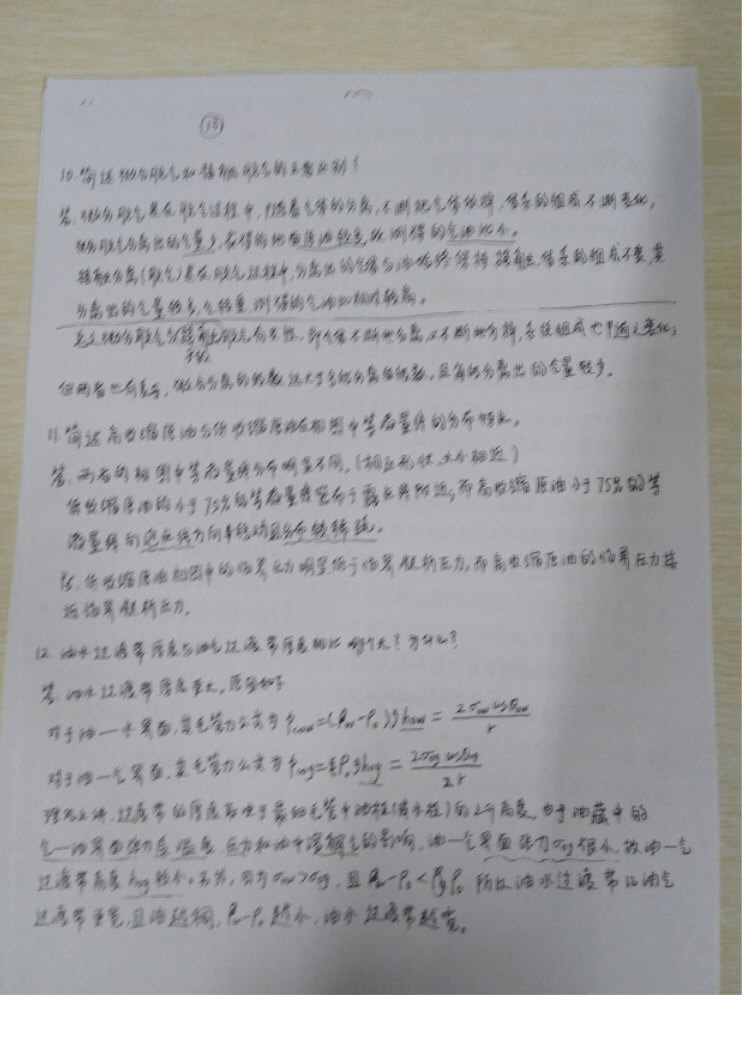 13
10. 简述微分脱气和接触脱气的主要区别?
答: 微分脱气是在脱气过程中, 随着气体的分离, 不断把气体放掉, 体系的组成不断变化,
微分脱气分离出的气量少, 获得的地面原油较多, 故测得的气油比小。
接触分离(脱气)是在脱气过程中, 分离出的气体与油始终保持接触, 体系的组成不变, 其
分离出的气量较多, 气较重, 测得的气油比相对较高。
微分脱气与 脱气 即气体不断地分离, 不断地 系统组成也 变化;
多级
但两者也有差异, 微分分离的级数远大于多级分离的级数, 且 分离出的气量较少。
11. 简述高收缩原油与低收缩原油在相图中等液量线的分布特点。
答. 两者的相图中等液量线分布明显不同, (相近形状、大小相近)
低收缩原油的小于75%的等液量线密布于露点线附近, 而高收缩原油小于75%的等
液量线向泡点线方向 移动且分布较稀疏。
低收缩原油相图中的临界压力明显低于临界凝析压力, 而高收缩原油的临界压力接
近临界凝析压力.
12. 油水过渡带厚度与油气过渡带厚度相比哪个大? 为什么?
答: 油水过渡带厚度更大, 原因如下
对于油一水界面, 其毛管力公式为 Pcow=(ρw-ρo)ghow = 2σow cosθow / r
对于油一气界面, 其毛管力公式为 Pcog= ρoghog = 2σog cosθog / 2r
理论上讲, 过渡带的厚度取决于最细毛管中油柱(或水柱)的上升高度, 由于油藏中的
气一油界面张力受温度、压力和油中溶解气的影响, 油一气界面张力σog很小, 故油一气
过渡带高度hog较小。另外, 因为σow>σog, 且ρw-ρo< ρo 所以油水过渡带比油气
过渡带更宽, 且油越稠, ρw-ρo越小, 油水过渡带越宽。